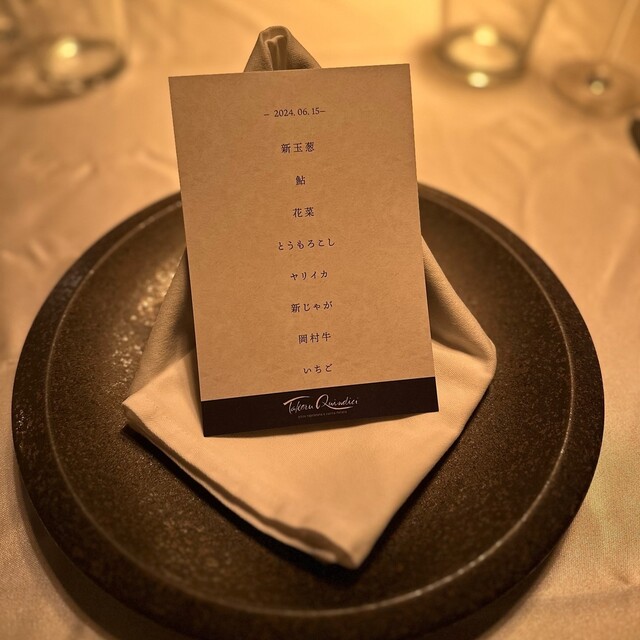 — 2024. 06. 15—
新玉葱
鮎
花菜
とうもろこし
ヤリイカ
新じゃが
岡村牛
いちご
Takeru Quindici